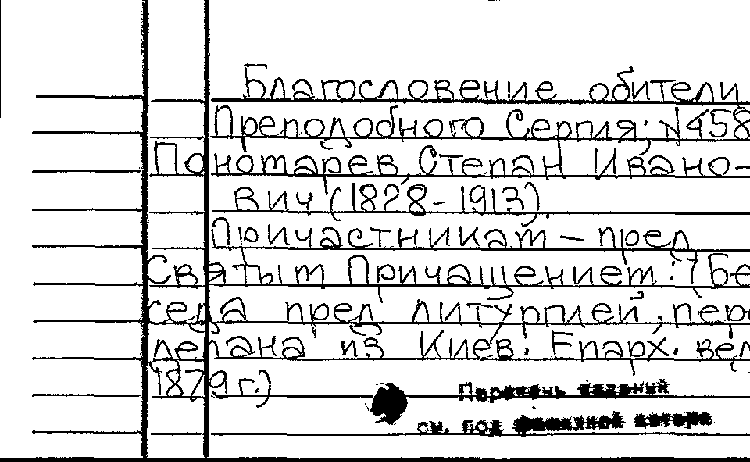 Благословение обители
Преподобного Сергия; №458
Пономарев, Степан Ивано-
вич (1828-1913).
Причастникам – пред
Святым Причащением. (Бе
седа пред литургией, пере
делана из Киев. Епарх. вед
1879 г.)
Перечень изданий
см. под фамилией автора